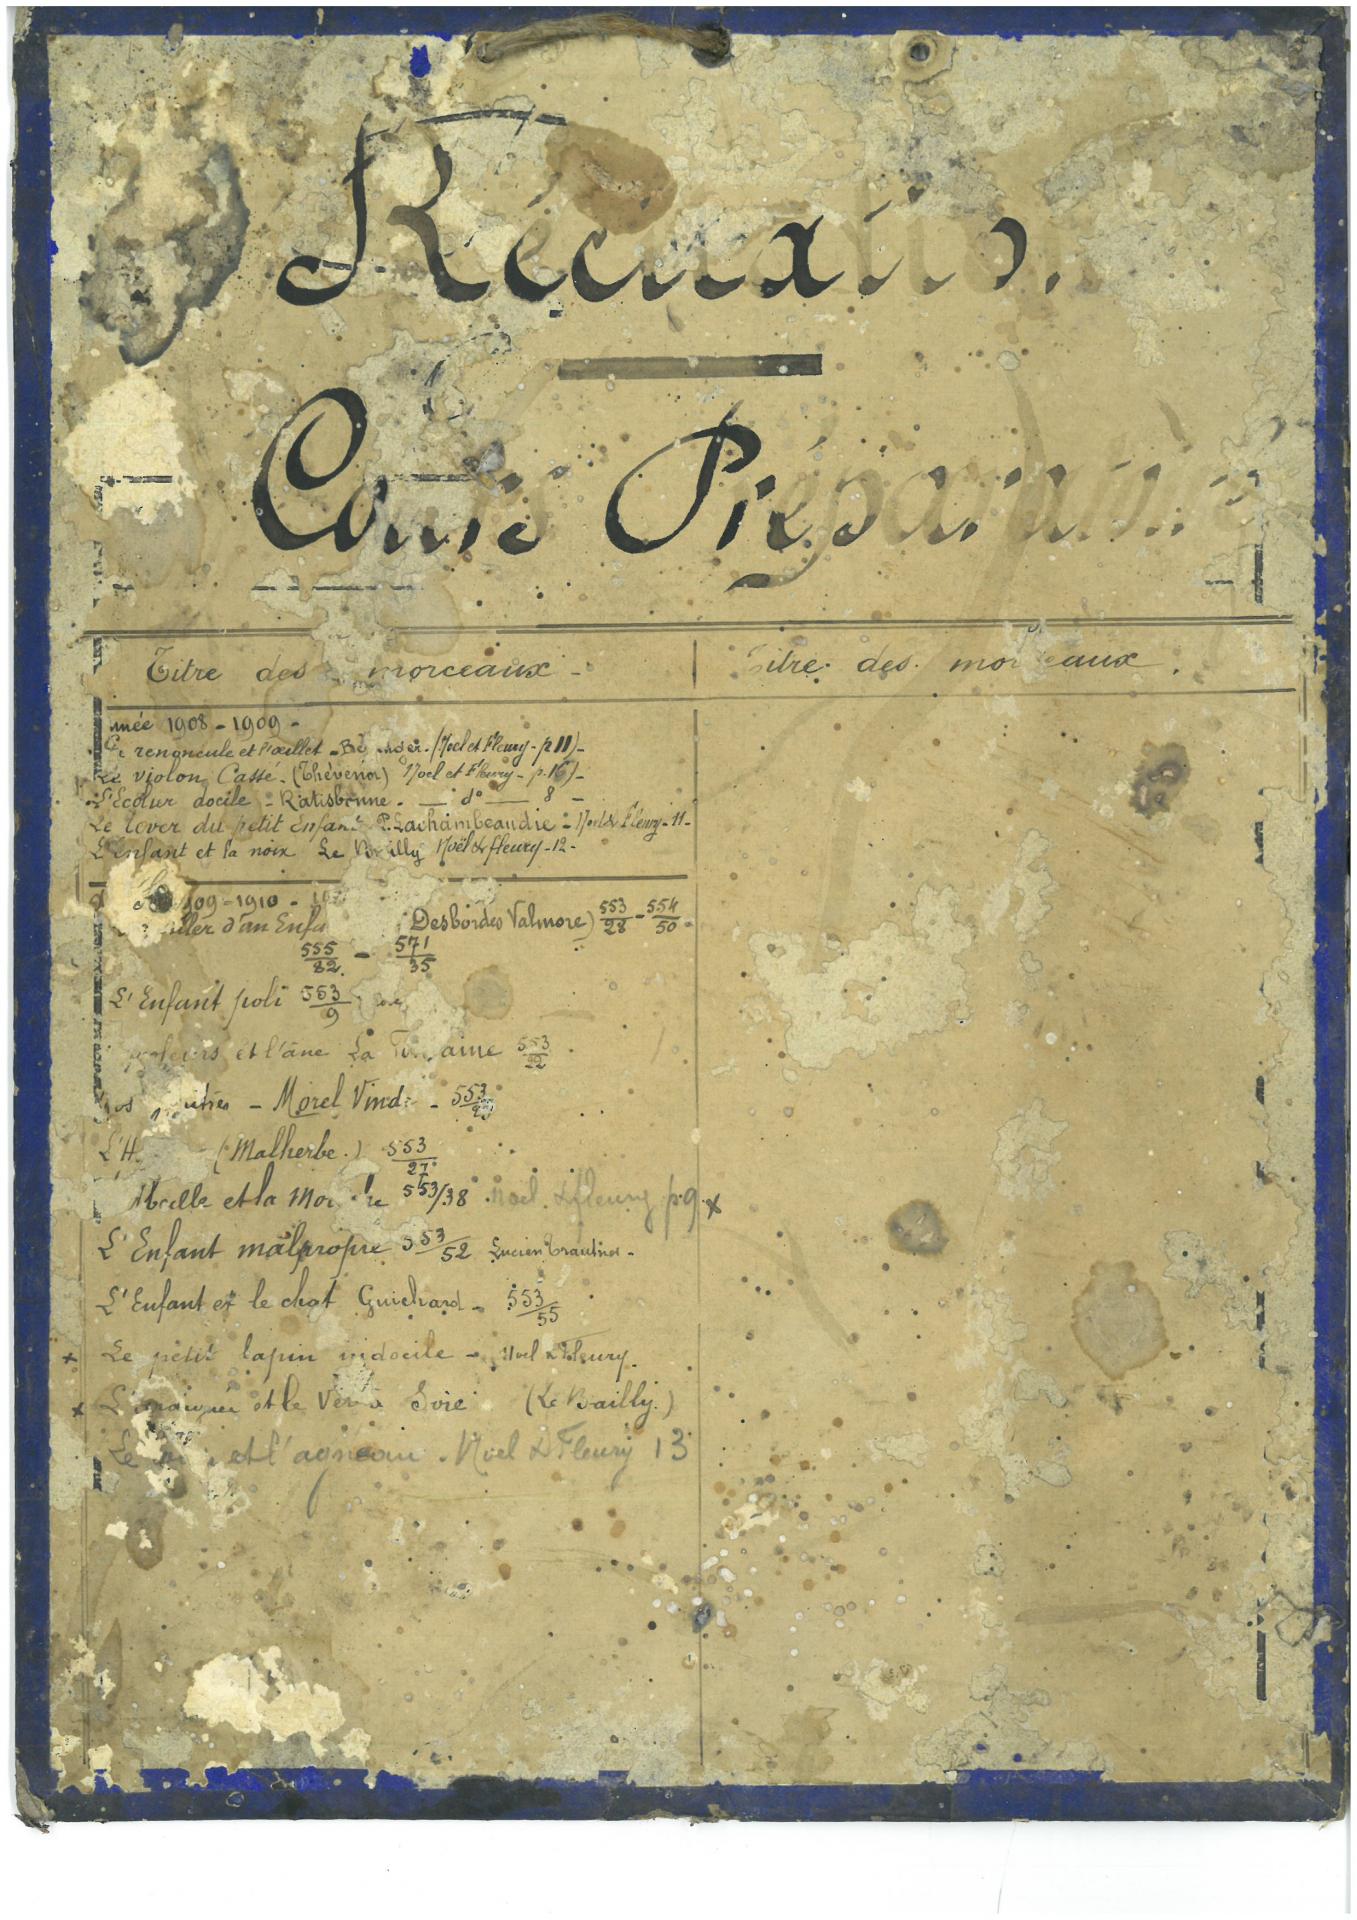 Récitation.
Cours Préparatoire
Titre des morceaux - Titre des morceaux.
née 1908 - 1909 -
renoncule et l'œillet - Bé nger. (Noel et Fleury - p 11) -
Le violon Cassé. (Thévenot) Noel et Fleury - p. 16) -
L'Ecolier docile - Ratisbonne. — d° — 8 -
Le lever du petit Enfant P. Lachambeaudie - Noel & Fleury - 11 -
L'enfant et la noix Le Bailly Noël & fleury - 12 -
1909 - 1910 -
ller d'un Enfa Desbordes Valmore) 553/28 - 554/50 -
555/82. - 571/35
L'Enfant poli 553/9
voleurs et l'âne La Fontaine 553/22
os - Morel Vindé - 553
L'H (Malherbe.) 553/27
Abeille et la Mou he 553/38 Noël & fleury p. 9. x
L'Enfant malpropre 553/52 Lucien Trautner -
L'Enfant et le chat Guichard - 553/55
x Le petit lapin indocile - Noel & Fleury.
x L'araignée et le Ver à Soie (Le Bailly.)
Le et l'agneau. Noel & Fleury 13